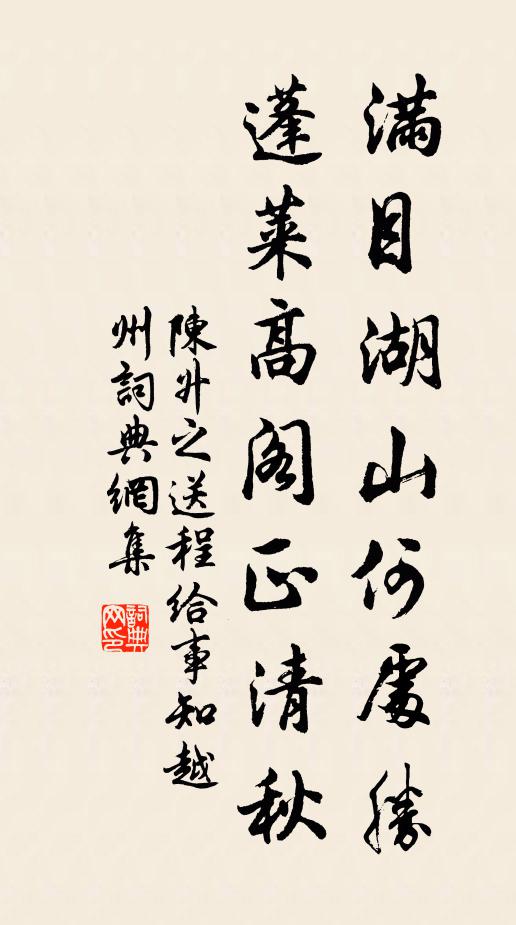 滿目湖山何處勝
蓬萊高閣正清秋
陳升之送程給事知越
州詞典網集
詞典
网印